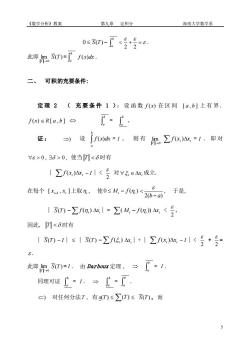 《数学分析》教案 第九章 定积分 海南大学数学系
0≤S̄(T)-∫̄ₐᵇ < ε/2 + ε/2 = ε.
此即 lim_{‖T‖→0} S̄(T)=∫̄ₐᵇ f(x)dx.
二、 可积的充要条件:
定理 2 ( 充要条件 1 ): 设函数 f(x) 在区间 [a,b] 上有界.
f(x)∈R[a,b] ⇔
证: ⇒) 设 ∫ₐᵇ f(x)dx = I, 则有 lim_{‖T‖→0} ∑f(xᵢ)Δxᵢ = I. 即对
∀ε>0, ∃δ>0, 使当‖T‖<δ时有
| ∑f(xᵢ)Δxᵢ - I | < ε/2 对∀ξᵢ∈Δxᵢ成立.
在每个 [xᵢ₋₁,xᵢ]上取ηᵢ, 使0≤Mᵢ-f(ηᵢ)<ε/2(b-a), 于是,
| S̄(T)-∑f(ηᵢ)Δxᵢ | = ∑(Mᵢ-f(ηᵢ))Δxᵢ < ε/2.
因此, ‖T‖<δ时有
| S̄(T)-I | ≤ | S̄(T)-∑f(ξᵢ)Δxᵢ | + | ∑f(xᵢ)Δxᵢ-I | < ε/2 + ε/2 =
ε.
此即 lim_{‖T‖→0} S̄(T)=I. 由 Darboux 定理, ⇒ ∫̄ₐᵇ = I.
同理可证 = I. ⇒
⇐) 对任何分法T, 有s(T)≤∑(T)≤ S̄(T), 而
5